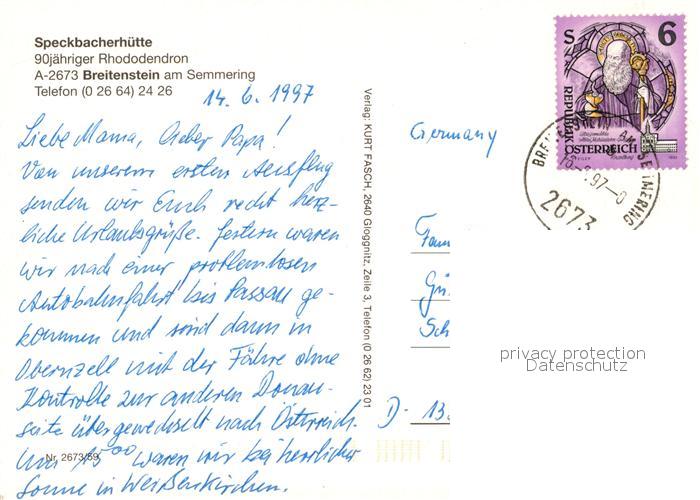 Speckbacherhütte
90jähriger Rhododendron
A-2673 Breitenstein am Semmering
Telefon (0 26 64) 24 26
14. 6. 1997
Liebe Mama, lieber Papa!
Von unserem ersten Ausflug
senden wir Euch recht herz-
liche Urlaubsgrüße. Gestern waren
wir nach einer problemlosen
Autobahnfahrt bis Passau ge-
kommen und sind dann in
Obernzell mit der Fähre ohne
Kontrolle zur anderen Donau-
seite übergewechselt nach Österreich.
Um 15⁰⁰ waren wir bei herrlicher
Sonne in Weißenkirchen.
Nr. 2673/59
Verlag: KURT FASCH, 2640 Gloggnitz, Zeile 3, Telefon (0 26 62) 23 01
Germany
Fam
Gü
Sch
D- 13
S 6
REPUBLIK
ÖSTERREICH
SEMMERING
97-0
2673
privacy protection
Datenschutz